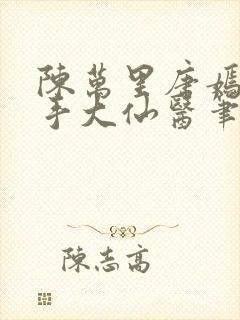 陳萬里唐嫣
手大仙醫筆
陳志高